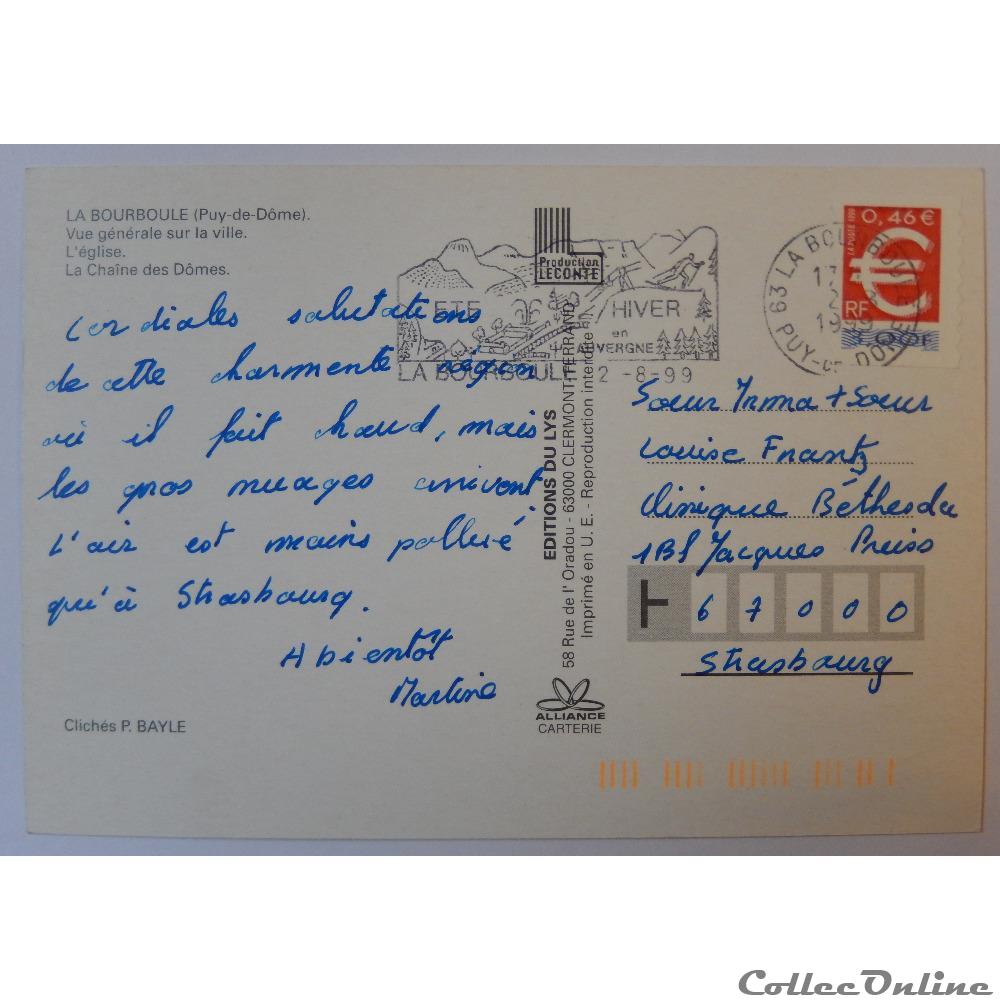 LA BOURBOULE (Puy-de-Dôme).
Vue générale sur la ville.
L'église.
La Chaîne des Dômes.
Cordiales salutations
de cette charmente région
où il fait chaud, mais
les gros nuages arrivent
L'air est moins pollué
qu'à Strasbourg.
A bientôt
Martine
Clichés P. BAYLE
Production
LECONTE
ETE HIVER
en
AUVERGNE
LA BOURBOULE 2 -8-99
EDITIONS DU LYS
58 Rue de l' Oradou - 63000 CLERMONT-FERRAND
Imprimé en U. E. - Reproduction interdite
ALLIANCE
CARTERIE
63 LA BOURBOULE
13
2 8
1999
PUY-DE-DOME
0,46 €
LA POSTE 1999
RF
Soeur Irma + Soeur
Louise Frantz
Clinique Béthesda
1 Bl Jacques Preiss
67000
Strasbourg
CollecOnline